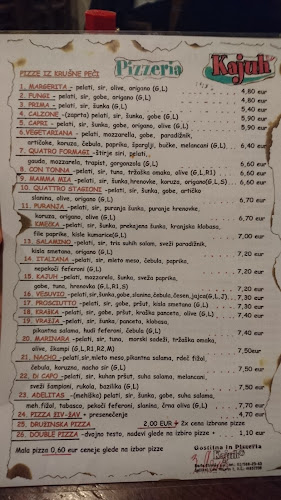 PIZZE IZ KRUŠNE PEČI
Pizzeria
Kajuh
1. MARGERITA - pelati, sir, olive, origano (G,L) 4,80 eur
2. FUNGI - pelati, sir, gobe, origano (G,L) 4,80 eur
3. PRIMA - pelati, sir, šunka (G,L) 5,40 eur
4. CALZONE -(zaprta) pelati, sir, šunka, gobe (G,L) 5,90 eur
5. CAPRI - pelati, sir, šunka, gobe, origano, olive (G,L) 5,90 eur
6.VEGETARIANA - pelati, mozzarella, gobe, paradižnik,
artičoke, koruza, čebula, paprika, šparglji, bučke, melancani (G,L) 6,40 eur
7. QUATRO FORMAGI -štirje siri, pelati,
gauda, mozzarela, trapist, gorgonzola (G,L) 6,60 eur
8. CON TONNA - pelati, sir, tuna, tržaška omaka, olive (G,L,R1) 6,60 eur
9. MAMMA MIA -pelati, sir, šunka,hrenovke, koruza, origano(G,L,S) 6,60 eur
10. QUATTRO STAGIONI - pelati, sir, šunka, gobe, artičko
slanina, olive, origano (G,L) 6,70 eur
11. PURANJA - pelati, sir, puranja šunka, puranje hrenovke,
koruza, origano, olive (G,L) 6,70 eur
KMEČKA - pelati, sir, šunka, prekajena šunka, kranjska klobasa,
file paprike, kisle kumarice(G,L) 7,00 eur
13. SALAMINO -pelati, sir, tris suhih salam, sveži paradižnik,
kisla smetana, origano (G,L) 7,20 eur
14. ITALIANA - pelati, sir, mleto meso, čebula, paprika,
nepekoči feferoni (G,L) 7,20 eur
15. KAJUH -pelati, mozzarela, šunka, sveža paprika,
gobe, tuna, hrenovka (G,L,R1,S) 7,20 eur
16. VESUVIO -pelati,sir,šunka,gobe,slanina,čebula,česen,jajce(G,L,J) 7,30 eur
17. PROSCIUTTO -pelati, sir, gobe, pršut, kisla smetana (G,L) 7,30 eur
18. KRAŠKA - pelati, sir, gobe, pršut, kraška panceta, olive (G,L) 7,70 eur
19. VRAŽJA - pelati, sir, šunka, panceta, klobasa,
pikantna salama, hudi feferoni, čebula (G,L) 7,40 eur
20. MARINARA - pelati, sir, tuna, morski sadeži, tržaška omaka,
olive, škampi (G,L,R1,R2,M) 7,50eur
21. NACHO -pelati,sir,mleto meso,pikantna salama, rdeč fižol,
čebula, koruzno, nacho sir (G,L) 7,50 eur
22. DI CAPO -pelati, sir, kuhan pršut, suha salama, melancani,
sveži šampioni, rukola, bazilika (G,L) 7,50 eur
23. ADELITAS - (mehiška) pelati, sir, šunka, gobe, suha salama,
meh.fižol, tabasco, pekoči feferoni, slanina, črna oliva (G,L) 7,70 eur
24. PIZZA + presenečenje 4,70 eur
25. DRUŽINSKA PIZZA 2,00 EUR + 2x cena izbrane pizze
26. DOUBLE PIZZA -dvojno testo, nadev glede na izbiro pizze + 1,10 eur
Mala pizza 0,60 eur ceneje glede na izbor pizze
Gostilna in Pizzeria
Kajuh